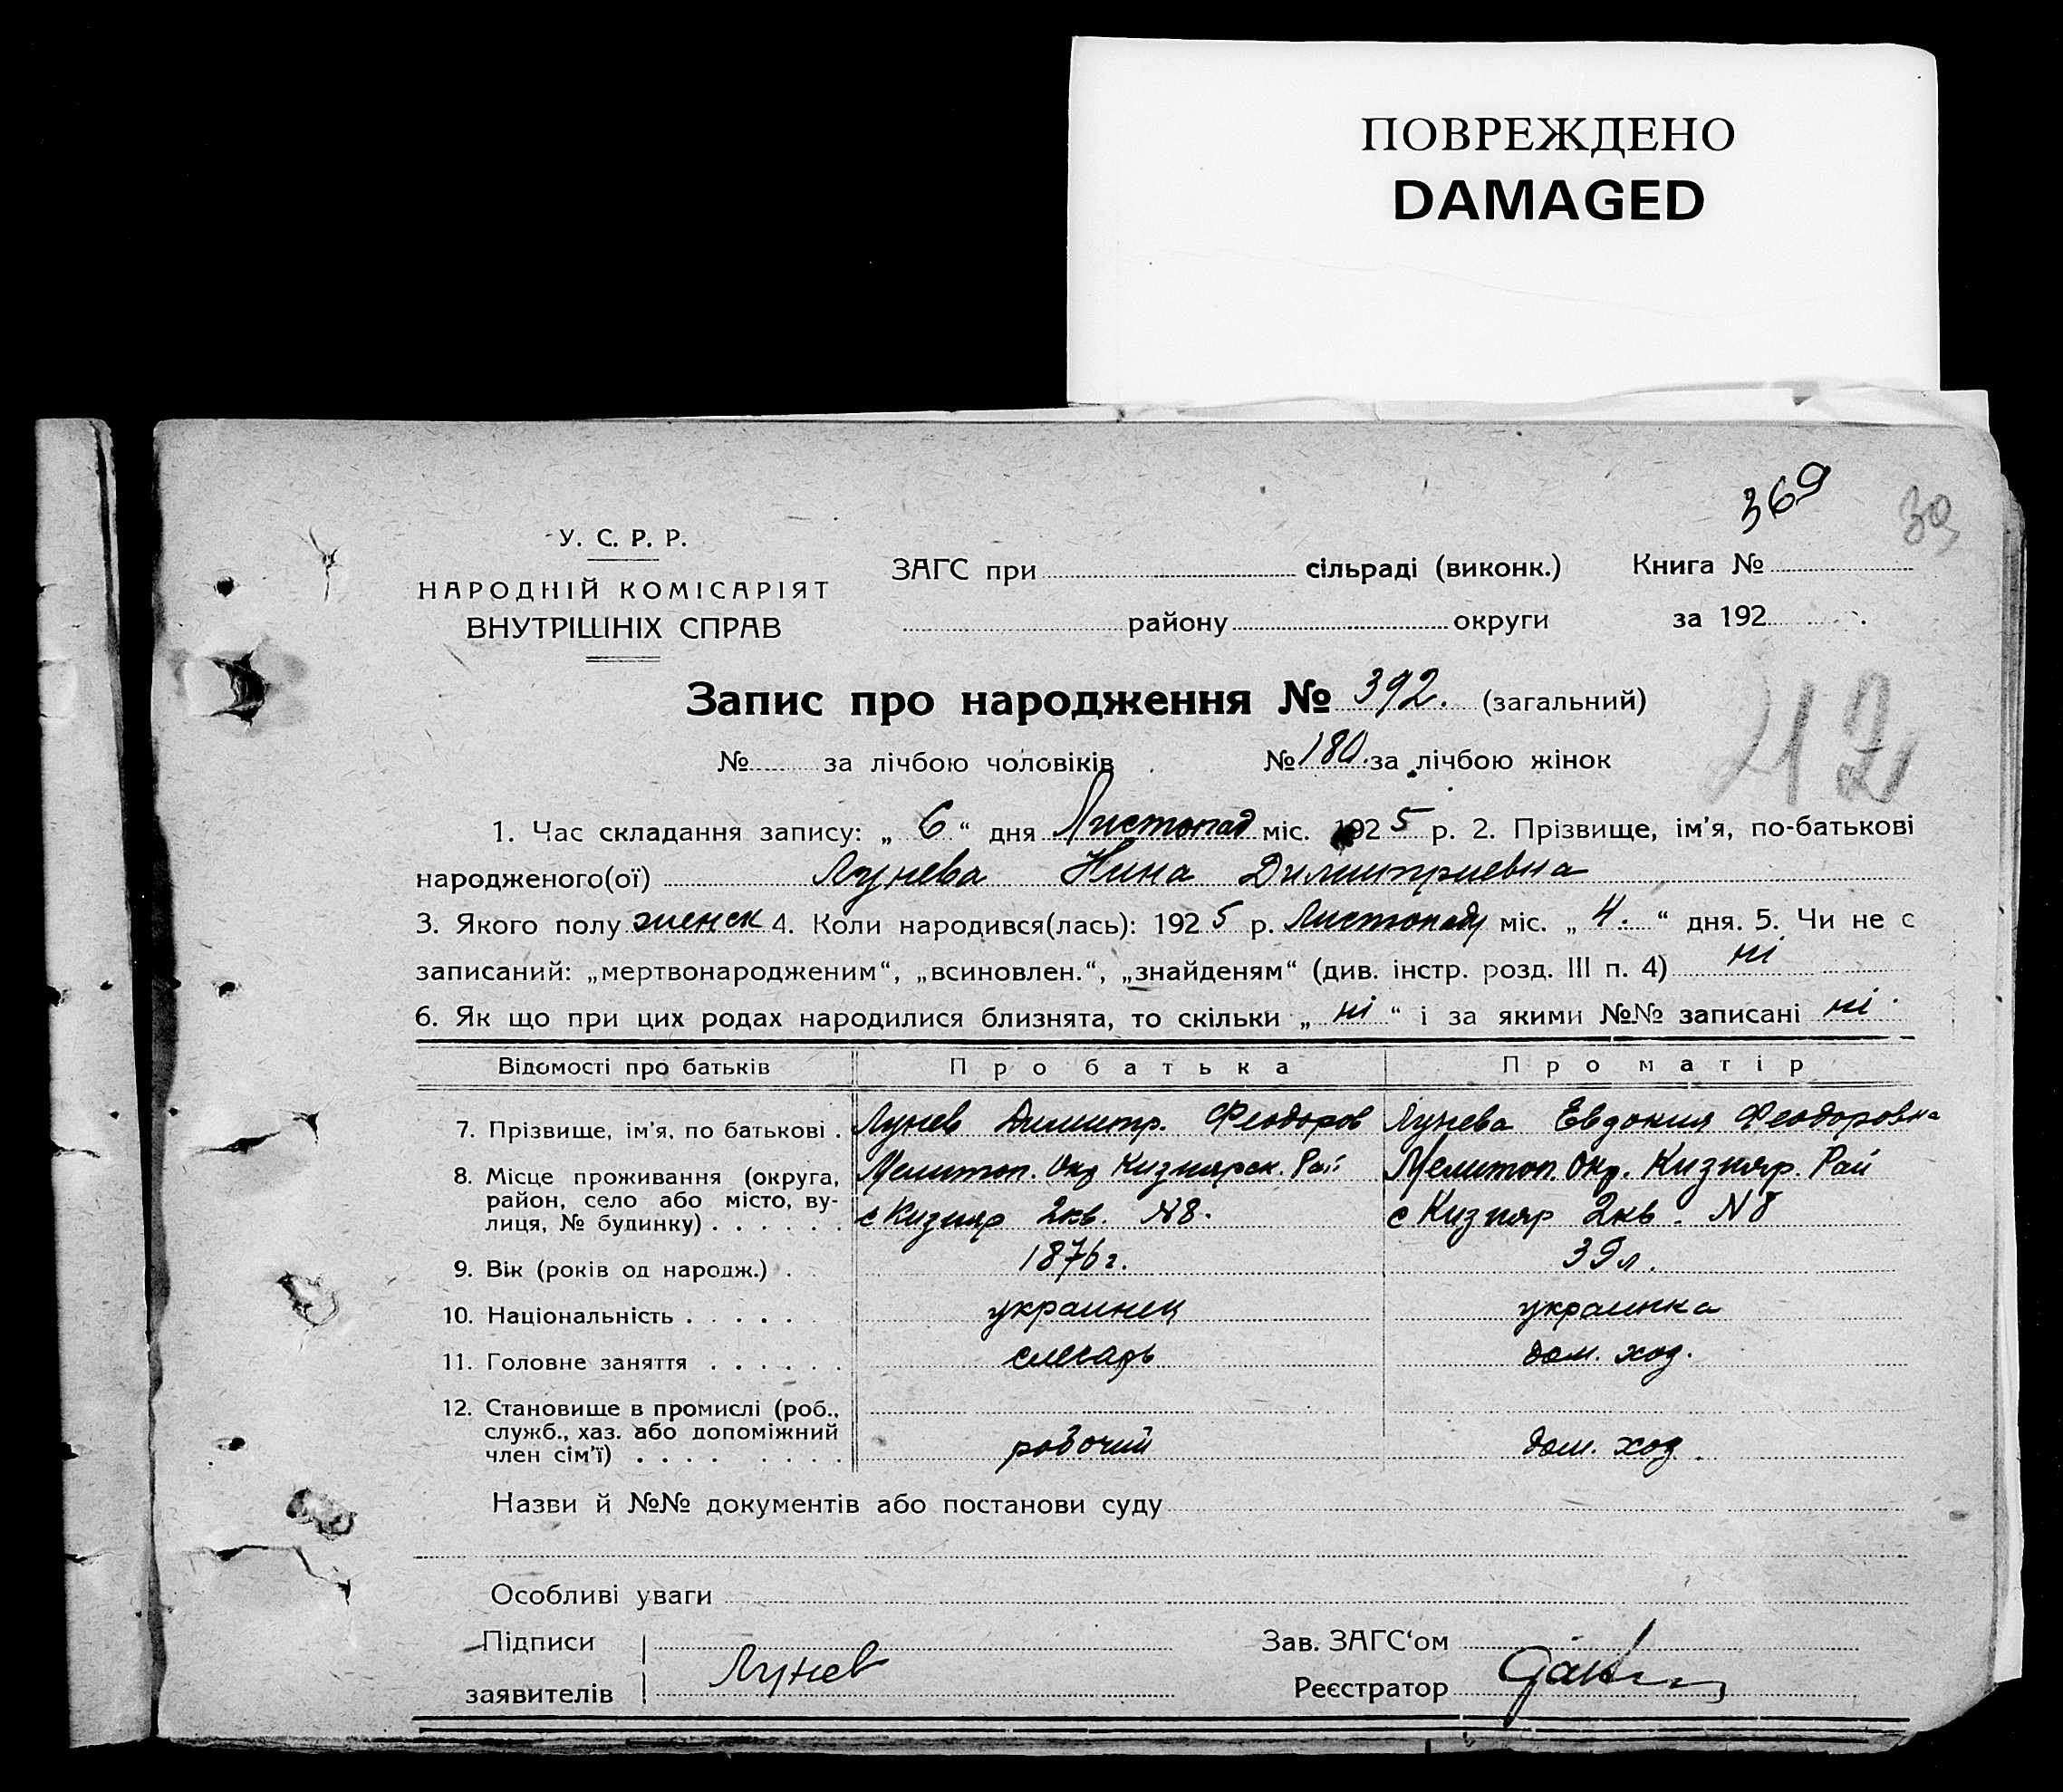 ПОВРЕЖДЕНО
DAMAGED
369
39
У. С. Р. Р.
НАРОДНІЙ КОМІСАРІЯТ
ВНУТРІШНІХ СПРАВ
ЗАГС при сільраді (виконк.) Книга №
району округи за 192
Запис про народження № 392. (загальний)
212
№ за лічбою чоловіків № 180. за лічбою жінок
1. Час складання запису: „ 6 “ дня Листопад міс. 1925 р. 2. Прізвище, ім’я, по-батькові
народженого(ої) Лунева Нина Димитриевна
3. Якого полу женск 4. Коли народився(лась): 1925 р. Листопаду міс. „ 4. “ дня. 5. Чи не є
записаний: „мертвонародженим“, „всиновлен.“, „знайденям“ (див. інстр. розд. III п. 4) ні
6. Як що при цих родах народилися близнята, то скільки „ ні “ і за якими №№ записані ні
Відомості про батьків Про батька Про матір
7. Прізвище, ім’я, по батькові . Лунев Димитр. Феодоров Лунева Евдокия Феодоровна
8. Місце проживання (округа, Мелитоп. Окр Кизиярск. Рай Мелитоп. Окр. Кизияр. Рай
район, село або місто, ву-
лиця, № будинку) . . . . . . с Кизияр 2кв. №8. с Кизияр 2кв. N 8
9. Вік (років од народж.) . . 1876 г. 39 л.
10. Національність . . . . . украинец украинка
11. Головне заняття . . . . . . слесарь дом. хоз.
12. Становище в промислі (роб.,
служб., хаз. або допоміжний
член сім’ї) . . . . . . . . робочий дом. хоз.
Назви й №№ документів або постанови суду
Особливі уваги
Підписи Зав. ЗАГС‘ом
заявителів Лунев Реєстратор